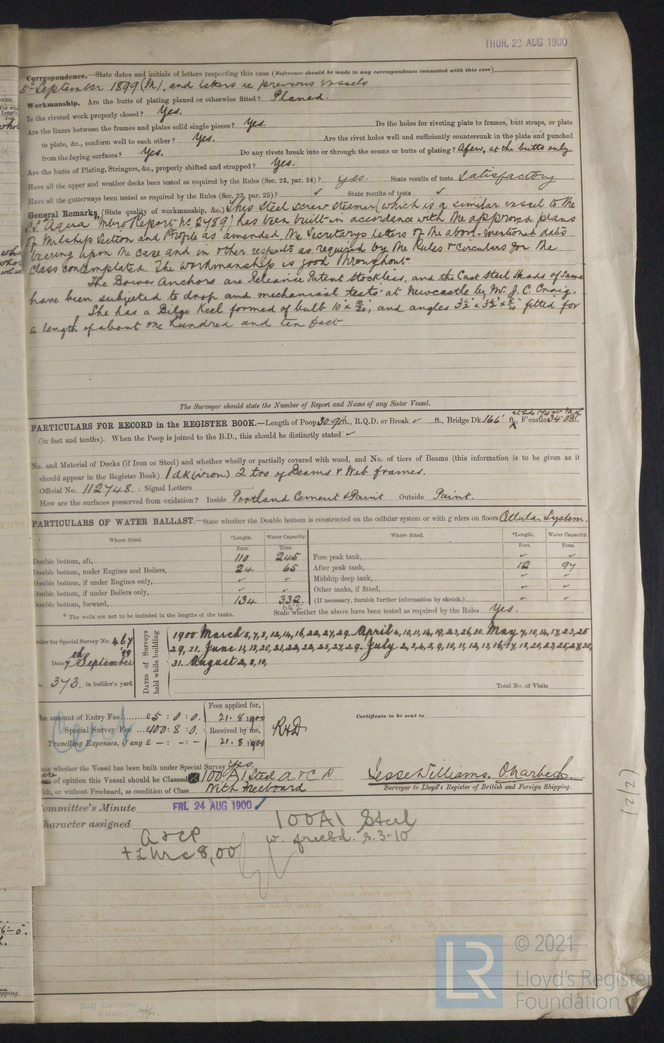 THUR. 23 AUG 1900
Correspondence.—State dates and initials of letters respecting this case (Reference should be made to any correspondence connected with this case)
5th September 1899 (M), and letters re previous vessels
Workmanship. Are the butts of plating planed or otherwise fitted? Planed.
Is the riveted work properly closed? Yes.
Are the liners between the frames and plates solid single pieces? Yes. Do the holes for riveting plate to frames, butt straps, or plate
to plate, &c., conform well to each other? Yes. Are the rivet holes well and sufficiently countersunk in the plate and punched
from the faying surfaces? Yes. Do any rivets break into or through the seams or butts of plating? A few, at the butts only
Are the butts of Plating, Stringers, &c., properly shifted and strapped? Yes.
Have all the upper and weather decks been tested as required by the Rules (Sec. 23, par. 24)? Yes. State results of tests Satisfactory
Have all the gutterways been tested as required by the Rules (Sec. 23, par. 25)? ✓ State results of tests ✓
General Remarks, (State quality of workmanship, &c.) This Steel Screw Steamer, which is a similar vessel to the
has been built in accordance with the approved plans
of Midship Section and Profile as amended, the Secretary's letters of the above mentioned date
bearing upon the case and in other respects as required by the Rules & Circulars for the
class contemplated. The workmanship is good throughout.
The Bower Anchors are Reliance Patent Stockless, and the Cast Steel Heads of same
have been subjected to drop and mechanical tests at Newcastle by Mr. J. C. Craig.
She has a Bilge Keel formed of bulb and angles fitted for
a length of about one hundred and ten feet
The Surveyor should state the Number of Report and Name of any Sister Vessel.
PARTICULARS FOR RECORD in the REGISTER BOOK.—Length of Poop ft., R.Q.D. or Break ✓ ft., Bridge Dk. 166 ft., F'castle
(in feet and tenths). When the Poop is joined to the B.D., this should be distinctly stated ✓
No. and Material of Decks (if Iron or Steel) and whether wholly or partially covered with wood, and No. of tiers of Beams (this information is to be given as it
should appear in the Register Book) 1 dk (iron) 2 trs of Beams & Web frames.
Official No. 112748. : Signal Letters
How are the surfaces preserved from oxidation? Inside Portland Cement & Paint Outside Paint.
PARTICULARS OF WATER BALLAST.—State whether the Double bottom is constructed on the cellular system or with girders on floors Cellular System.
Where fitted. *Length. Water Capacity. Where fitted. *Length. Water Capacity.
Feet. Tons. Feet. Tons.
Double bottom, aft, 110 245 Fore peak tank, ✓ ✓
Double bottom, under Engines and Boilers, 24 65 After peak tank, 12 97
Double bottom, if under Engines only, ✓ ✓ Midship deep tank, ✓ ✓
Double bottom, if under Boilers only, ✓ ✓ Other tanks, if fitted, ✓ ✓
Double bottom, forward, 134 332 (If necessary, furnish further information by sketch.)
642
* The wells are not to be included in the lengths of the tanks. State whether the above have been tested as required by the Rules Yes.
Order for Special Survey No. 467
Date 7th September '99
No. 373. in builder's yard.
Dates of Surveys held while building
1900 March 5, 7, 8, 12, 14, 16, 22, 27, 29. April 4, 10, 11, 14, 19, 23, 26, 30. May 7, 10, 14, 17, 23, 25
29, 31. June 11, 13, 20, 21, 22, 23, 25, 27, 29. July
31. August 2, 8, 10,
Total No. of Visits
The amount of Entry Fee ... £5 : 0 : 0. Fees applied for, 21. 8. 1900
Special Survey Fee ... 400 : 8 : 0. Received by me, 21. 8. 1900
Travelling Expenses, if any £ – : – : –
Certificate to be sent to
State whether the Vessel has been built under Special Survey Yes.
are of opinion this Vessel should be Classed 100A1 Steel A & C P
With, or without Freeboard, as condition of Class With Freeboard
Jesse Williams.
Surveyor to Lloyd's Register of British and Foreign Shipping.
Committee's Minute FRI. 24 AUG 1900
Character assigned 100A1 Steel
A & CP w. freebd. 2.3-10
+ LMC 8,00
(2/2)
LR
© 2021
Lloyd's Register
Foundation